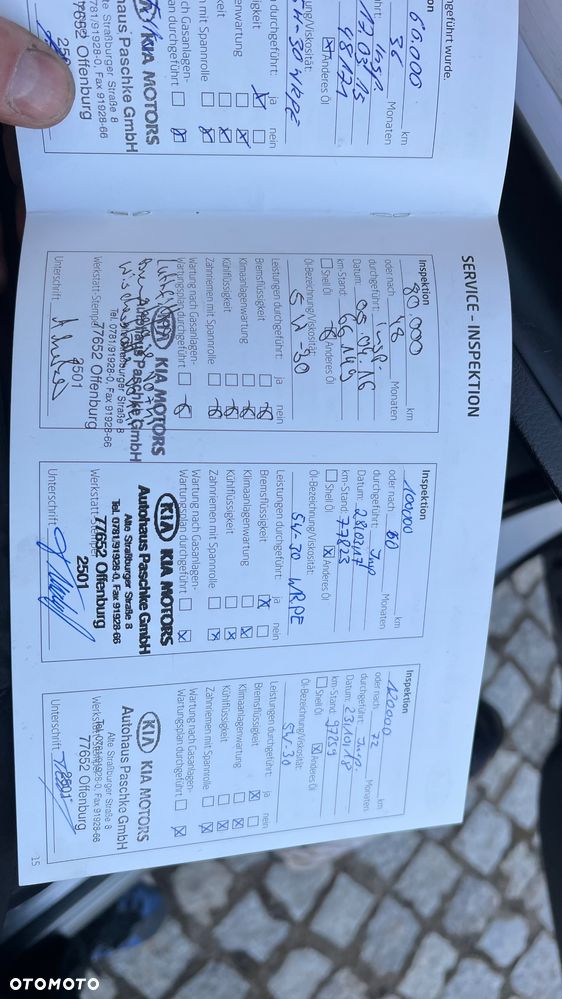 ngeführt wurde.
60.000 km
36 Monaten
Insp.
17.03.15
48121
Anderes Öl
5W-30 WRPE
durchgeführt: ja nein
KIA MOTORS
Autohaus Paschke GmbH
Alte Straßburger Straße 8
0781/91928-0, Fax 91928-66
77652 Offenburg
2501
SERVICE - INSPEKTION
Inspektion
90.000 km
oder nach 48 Monaten
durchgeführt: Insp.
Datum:
km-Stand:
Shell Öl Anderes Öl
Öl-Bezeichnung/Viskosität:
5W-30
Leistungen durchgeführt: ja nein
Bremsflüssigkeit
Klimaanlagenwartung
Kühlflüssigkeit
Zahnriemen mit Spannrolle
Wartung nach Gasanlagen-
Wartungsplan durchgeführt
KIA MOTORS
Autohaus Paschke GmbH
Alte Straßburger Straße 8
Tel. 0781/91928-0, Fax 91928-66
77652 Offenburg
2501
Werkstatt-Stempel
Unterschrift
Inspektion
100.000 km
oder nach 60 Monaten
durchgeführt: Insp
Datum: 28.03.17
km-Stand: 77823
Shell Öl Anderes Öl
Öl-Bezeichnung/Viskosität:
5W-30 WRPE
Leistungen durchgeführt: ja nein
Bremsflüssigkeit
Klimaanlagenwartung
Kühlflüssigkeit
Zahnriemen mit Spannrolle
Wartung nach Gasanlagen-
Wartungsplan durchgeführt
KIA KIA MOTORS
Autohaus Paschke GmbH
Alte Straßburger Straße 8
Tel. 0781/91928-0, Fax 91928-66
77652 Offenburg
2501
Werkstatt-Stempel
Unterschrift
Inspektion
120000 km
oder nach 72 Monaten
durchgeführt: Insp.
Datum:
km-Stand: 97259
Shell Öl Anderes Öl
Öl-Bezeichnung/Viskosität:
5W-30
Leistungen durchgeführt: ja nein
Bremsflüssigkeit
Klimaanlagenwartung
Kühlflüssigkeit
Zahnriemen mit Spannrolle
Wartung nach Gasanlagen-
Wartungsplan durchgeführt
KIA KIA MOTORS
Autohaus Paschke GmbH
Alte Straßburger Straße 8
Tel. 0781/91928-0, Fax 91928-66
77652 Offenburg
2501
Unterschrift
15
OTOMOTO